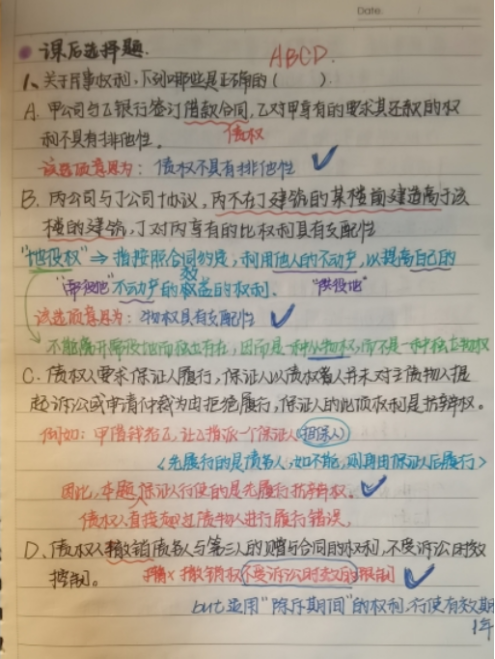 Date:
课后选择题.
ABCD.
1、关于民事权利,下列哪些是正确的( ).
A. 甲公司与乙银行签订借款合同,乙对甲享有的要求其还款的权
利不具有排他性。
债权
该选项意思为: 债权不具有排他性 ✓
B. 丙公司与丁公司协议,丙不在丁建筑的某楼前建造高于该
楼的建筑,丁对丙享有的此权利具有支配性
"地役权" ⇒ 指按照合同约定,利用他人的不动产,以提高自己的
"需役地" 不动产的效益的权利. "供役地"
该选项意思为: 物权具有支配性 ✓
不能离开需役地而独立存在,因而是一种从物权,而不是一种独立物权
C. 债权人要求保证人履行,保证人以债权人并未对主债务人提
起诉讼或申请仲裁为由拒绝履行,保证人的此项权利是抗辩权。
例如: 甲借钱给乙,让乙指派一个保证人(担保人)
<先履行的是债务人,如不能,则再由保证人后履行>
因此,本题保证人行使的是先履行抗辩权. ✓
债权人直接越过债务人进行履行错误,
D. 债权人撤销债务人与第三人的赠与合同的权利,不受诉讼时效
控制。
撤销权不受诉讼时效的限制 ✓
but 适用"除斥期间"的权利,行使有效期
1年